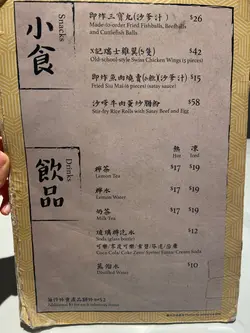 小食
Snacks
即炸三寶丸(沙爹汁) $26
Made-to-order Fried Fishballs, Beefballs
and Cuttlefish Balls
X記瑞士雞翼(5隻) $42
Old-school-style Swiss Chicken Wings (5 pieces)
即炸魚肉燒賣(6粒)(沙爹汁) $15
Fried Siu Mai (6 pieces) (satay sauce)
沙嗲牛肉蛋炒腸粉 $58
Stir-fry Rice Rolls with Satay Beef and Egg
飲品
Drinks
熱 凍
Hot Iced
檸茶 $17 $19
Lemon Tea
檸水 $17 $19
Lemon Water
奶茶 $17 $19
Milk Tea
玻璃樽汽水 $12
Soda (glass bottle)
Coca-Cola/ Coke Zero/ Sprite/ Fanta/ Cream Soda
蒸餾水 $10
Distilled Water